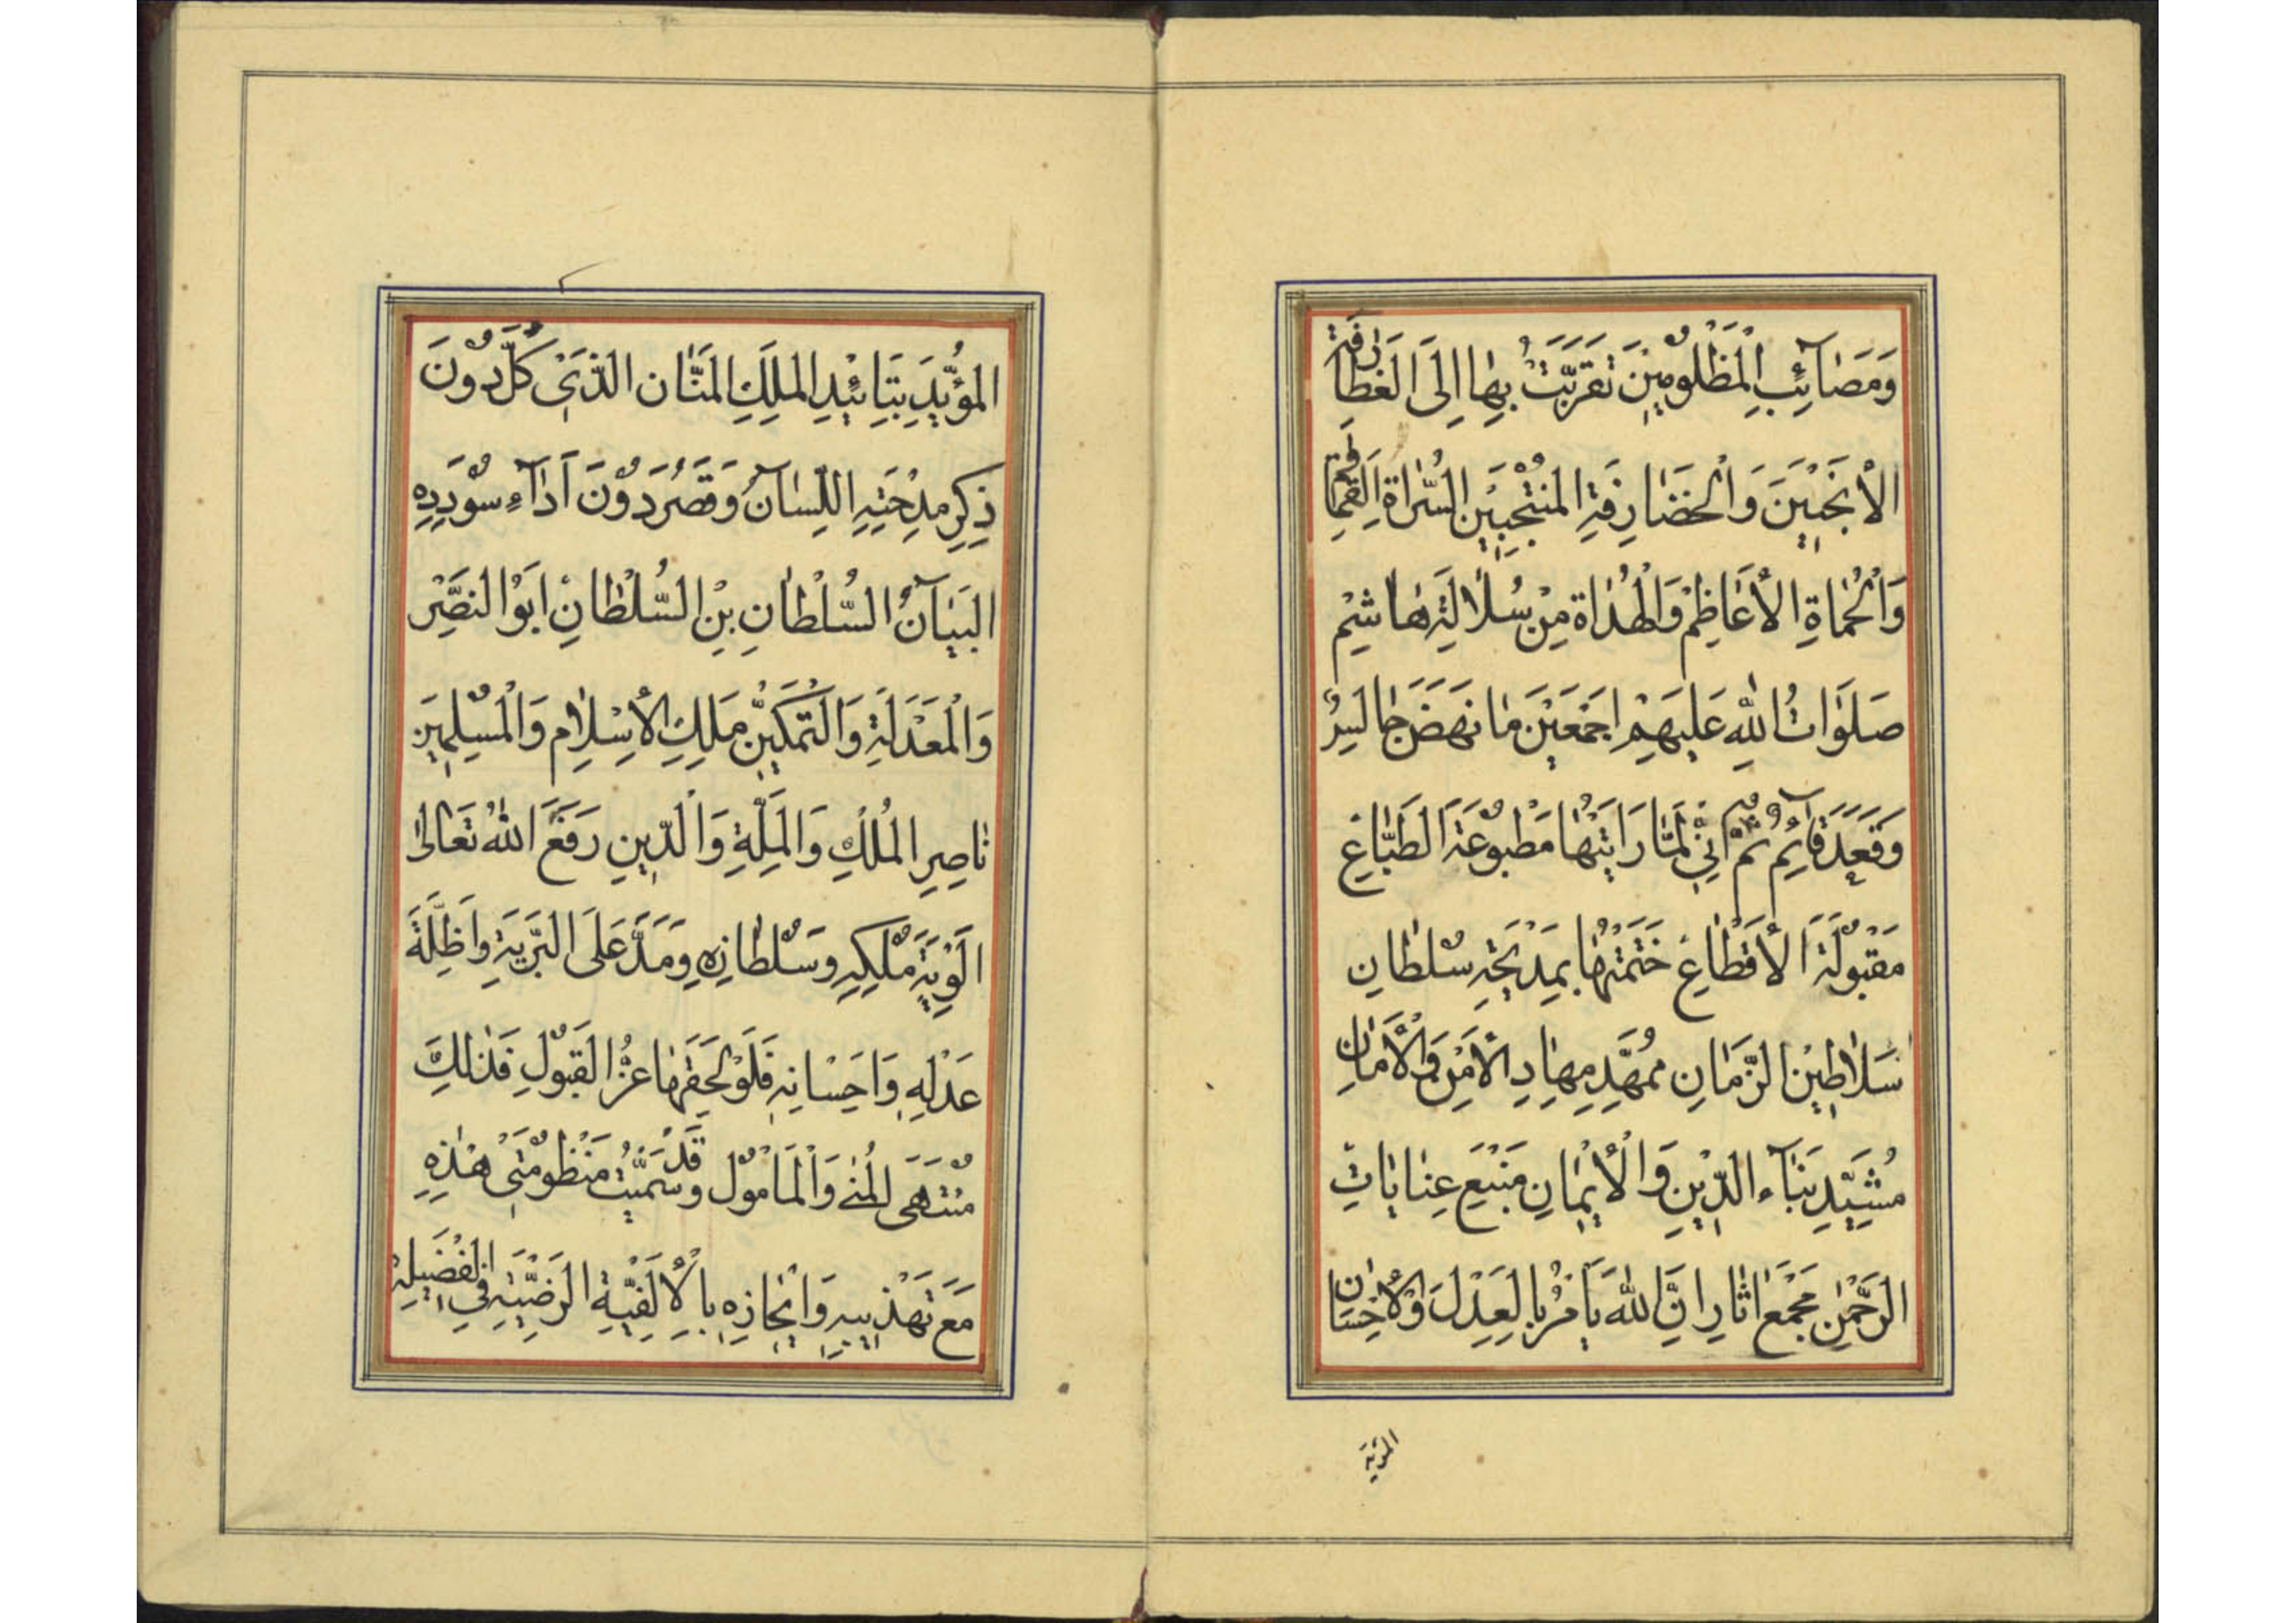 وَمَصَآئِبِ الْمَظْلُومِينَ تَقَرَّبْتُ بِهَا اِلَى الغَطَارِفَةِ
الأَنْجَبِينَ وَالْخَضَارِفَةِ المُنْتَجَبِينَ السُّرَاةِ القَمَاقِمِ
وَالْحُمَاةِ الأَعَاظِمْ وَالْهُدَاةِ مِنْ سُلَالَةِ هَاشِمْ
صَلَوَاتُ اللهِ عَلَيهِمْ اَجْمَعَيْنَ مَا نَهَضَ جَالِسٌ
وَقَعَدَ قَآئِمٌ ثُمَّ اِنِّي لَمَّا رَاَيْتُهَا مَطْبُوعَةَ الطِّبَاعِ
مَقْبُولَةَ الأَقْطَاعِ خَتَمْتُهَا بِمَدْيَحَةِ سُلْطَانِ
سَلَاطِيْنِ الزَّمَانِ مُمَهِّدِ مِهَادِ الأَمْنِ وَالْأَمَانِ
مُشَيِّدِ بَنَآءِ الدِّيْنِ وَالْأِيْمَانِ مَنْبَعِ عِنَايَاتِ
الرَّحْمٰنِ مَجْمَعِ اٰثَارِ اِنَّ اللهَ يَاْمُرُ بِالعَدْلِ وَالْأِحْسَانِ
المؤيد
المُؤَيَّدِ بِتَائِيْدِ المَلِكِ المَنَّانِ الَّذِيْ كَلَّ دُونَ
ذِكْرِ مِدْحَتِهِ اللِّسَآنُ وَقَصُرَ دُوْنَ اَدَآءِ سُوْدَدِهِ
البَيَآنُ السُّلْطَانِ بْنِ السُّلْطَانِ اَبُو النَّصْرِ
وَالْمَعْدَلَةِ وَالتَّمْكِيْنِ مَلِكِ الأِسْلَامِ وَالْمُسْلِمِيَن
نَاصِرِ الْمُلْكِ وَالْمِلَّةِ وَالْدِّينِ رَفَعَ اللهُ تَعَالىٰ
اَلْوِيَةَ مُلْكِهِ وَسُلْطَانِهِ وَمَدَّ عَلَى البَرِّيَةِ وَاَظِلَّةَ
عَدْلِهِ وَاَحِسْانِهِ فَلَوْ لَحِقَهَا عِزُّ القَبُولِ فَذٰلِكَ
مُنْتَهَى الْمُنٰى وَالْمَاْمُولْ وَقَدْ سَمَّيْتُ مَنْظُومَتِيْ هٰذِهِ
مَعَ تَهْذِيبِهِ وَاِنْجَازِهِ بِالْأَلْفِيَّةِ الرَضِّيَةِ فِي الفَضِيلِة